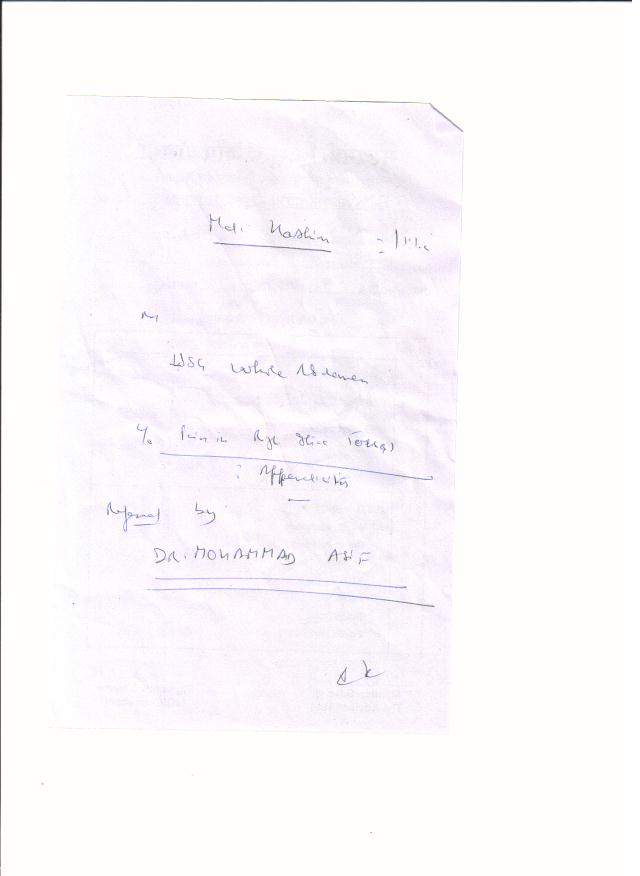 Md. Hashim
USG Whole Abdomen
C/o Pain in Rgt Iliac
? Appendicitis
Referred by
DR. MOHAMMAD ASIF